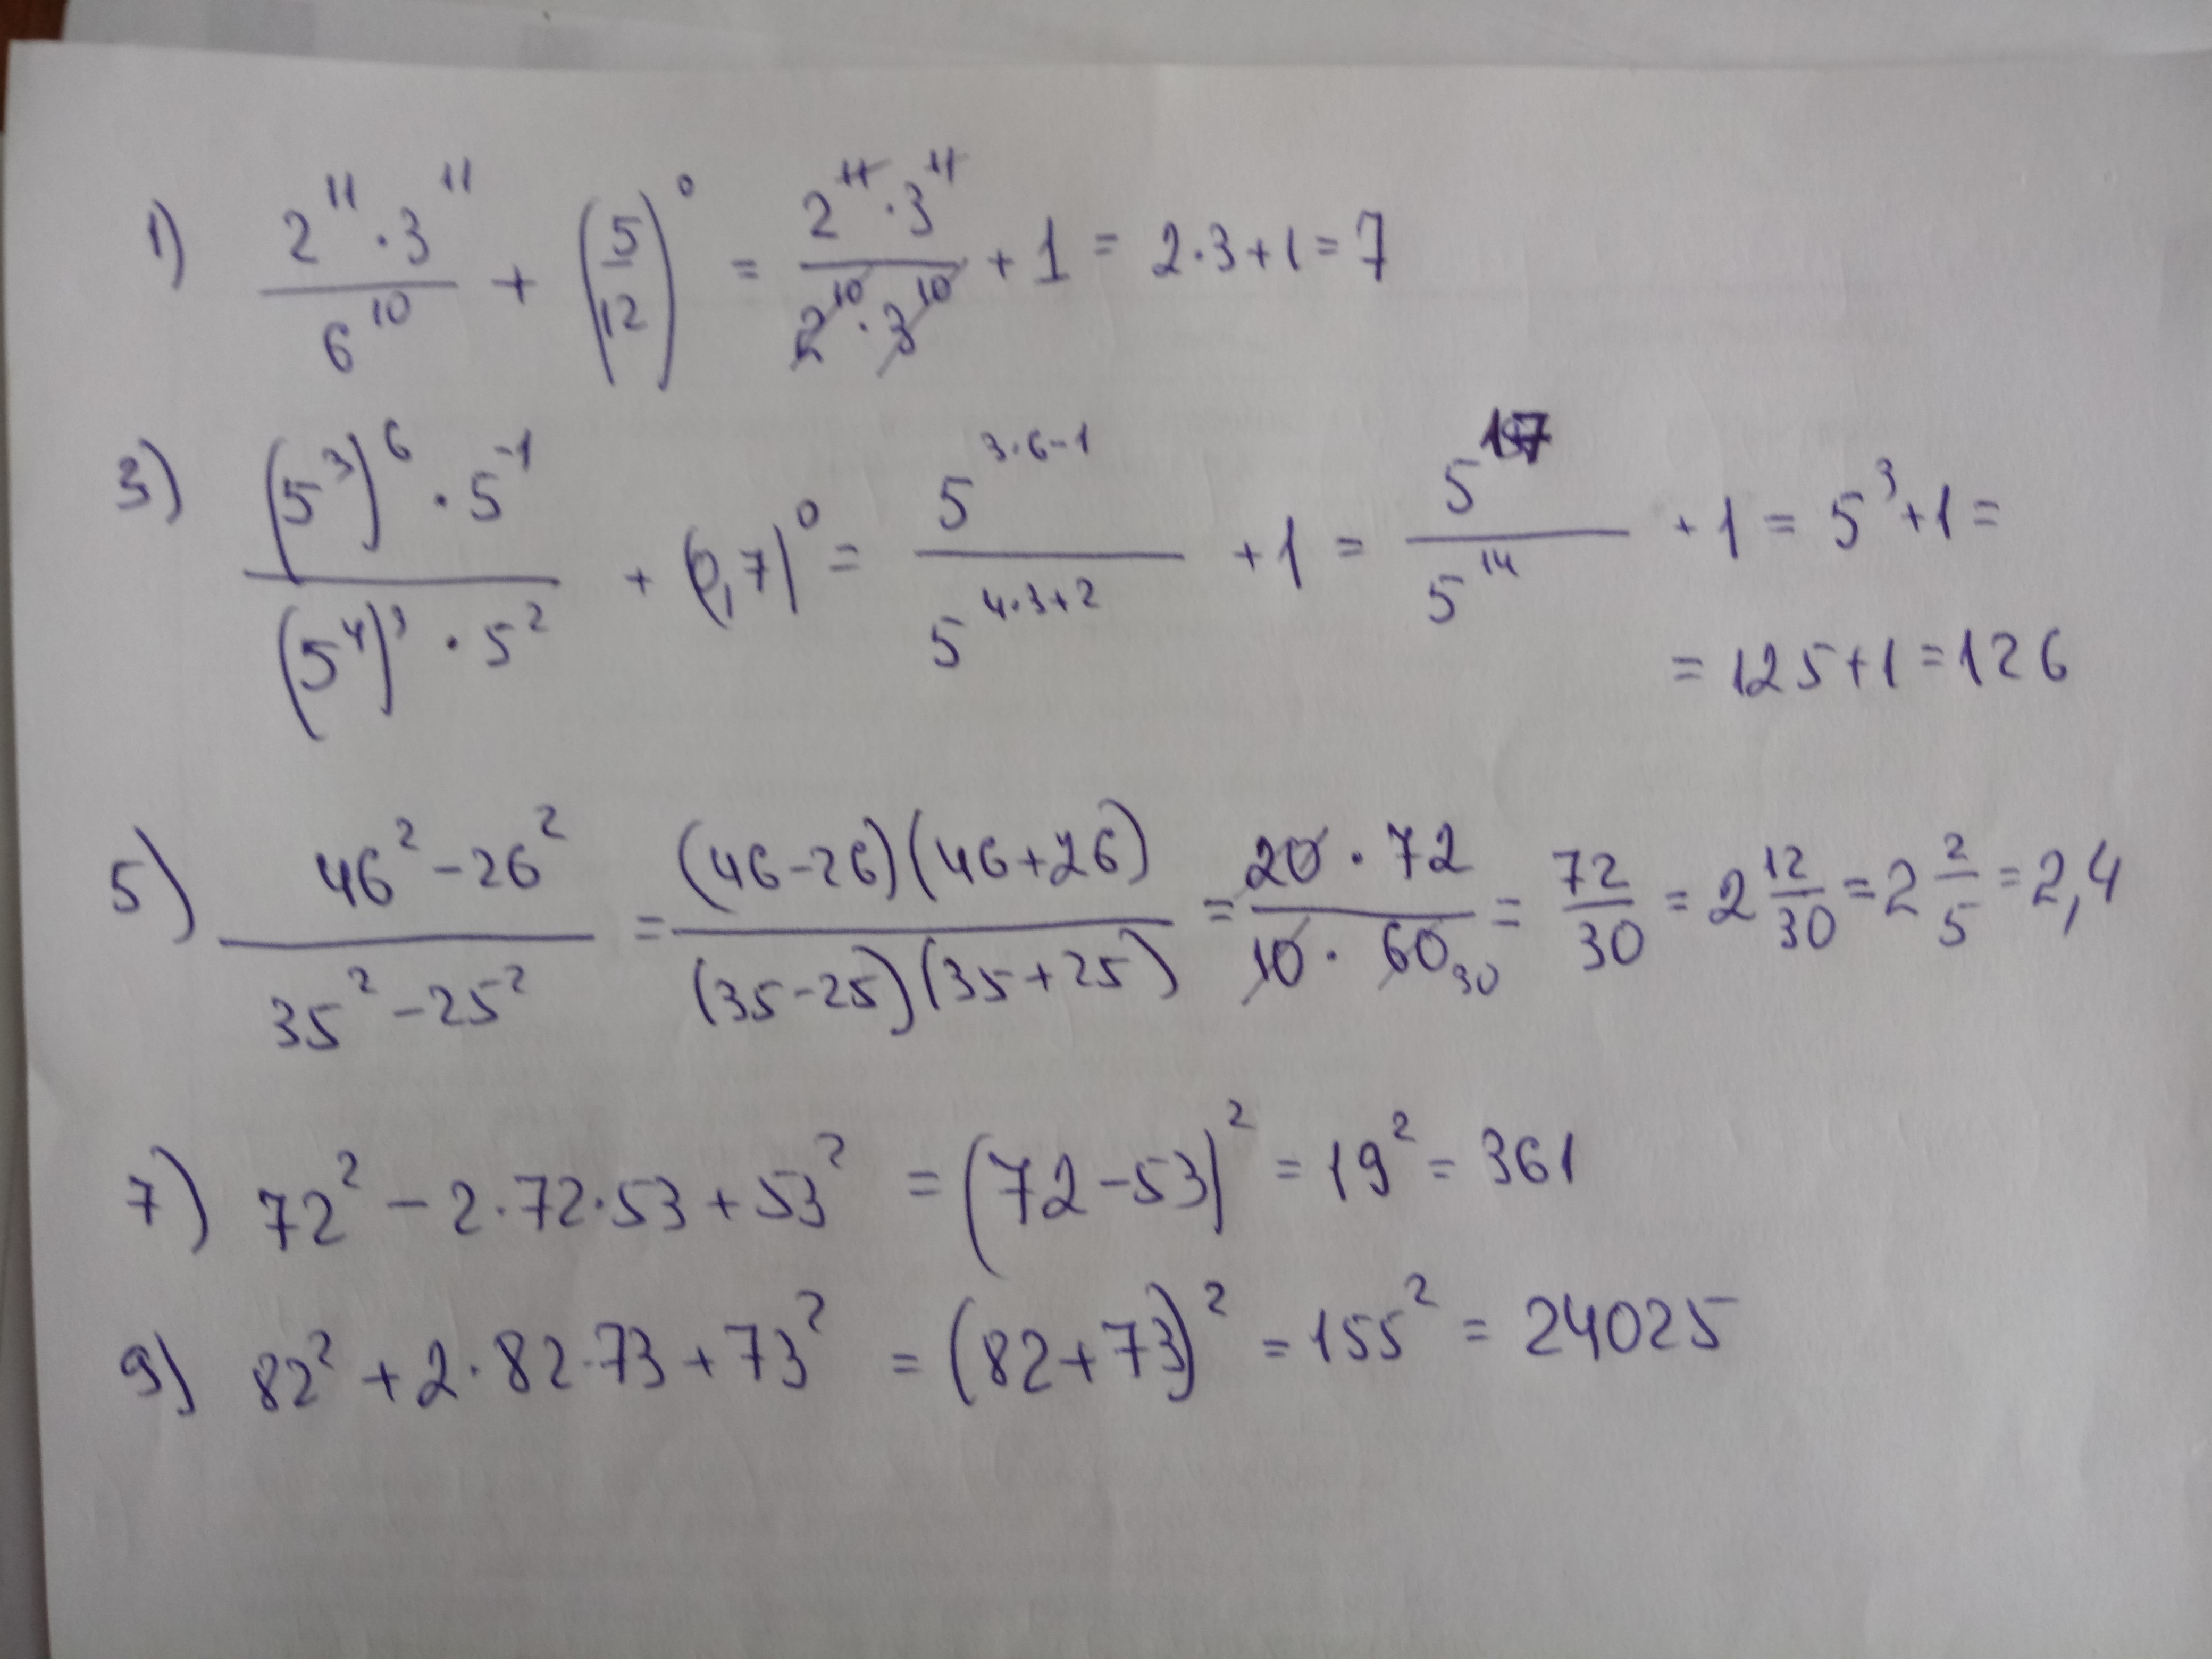 1) (2^11 · 3^11)/(6^10) + (5/12)^0 = (2^11 · 3^11)/(2^10 · 3^10) + 1 = 2·3+1=7
3) ((5^3)^6 · 5^-1)/((5^4)^3 · 5^2) + (0,7)^0 = (5^(3·6-1))/(5^(4·3+2)) + 1 = (5^17)/(5^14) + 1 = 5^3+1=
= 125+1=126
5) (46^2-26^2)/(35^2-25^2) = ((46-26)(46+26))/((35-25)(35+25)) = (20 · 72)/(10 · 60 30) = 72/30 = 2 12/30 = 2 2/5 = 2,4
7) 72^2 - 2·72·53 + 53^2 = (72-53)^2 = 19^2 = 361
9) 82^2 + 2·82·73 + 73^2 = (82+73)^2 = 155^2 = 24025